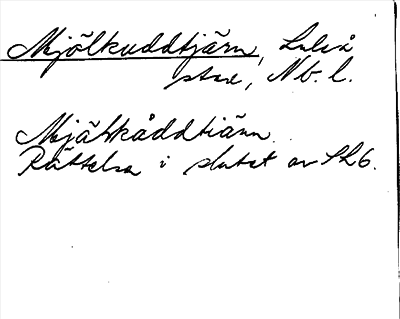 Mjölkuddtjärn, Luleå
stad, Nb. l.
Mjätkåddtiänn.
Rättelse i slutet av SL6.